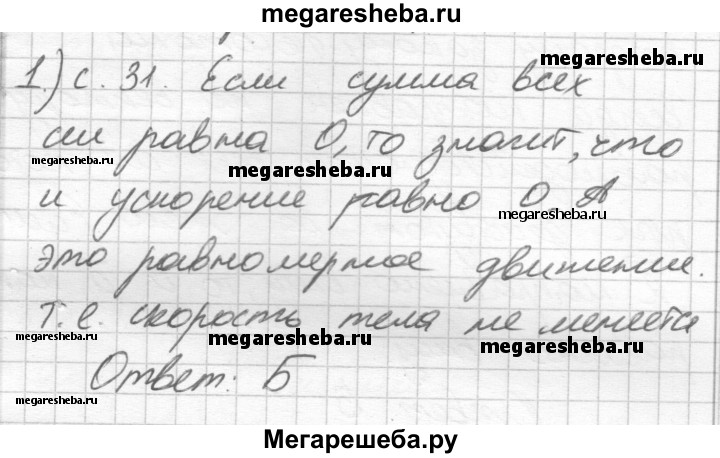 megaresheba.ru
1.) с. 31. Если сумма всех
megaresheba.ru
сил равна 0, то значит, что
megaresheba.ru
megaresheba.ru
и ускорение равно 0. А
megaresheba.ru
это равномерное движение.
т.е. скорость тела не меняется
megaresheba.ru
megaresheba.ru
Ответ: Б
megaresheba.ru
megaresheba.ru
Мегарешеба.ру